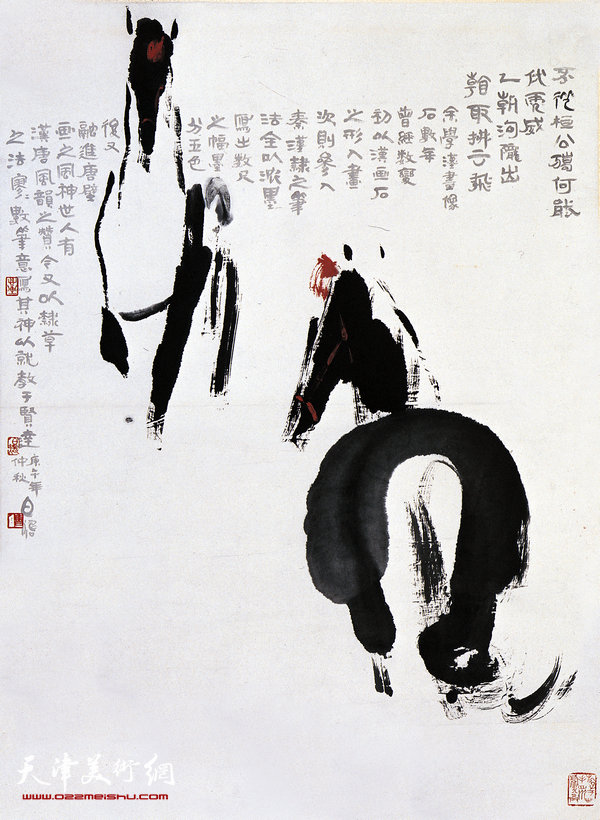 不從桓公獵何能
伏虎威
一朝沟隴出
看取拂云飛
余學漢畫像
石數年
曾經數變
初以漢画石
之形入畫
次則參入
秦漢隸之筆
法全以潑墨
寫出數
之幅墨
分五色
後又
融進唐壁
画之風神世人有
漢唐風韻之贊今又以隸草
之法寥數筆意寫其神以就教于賢達
庚午年
仲秋
天津美術網
www.022meishu.com